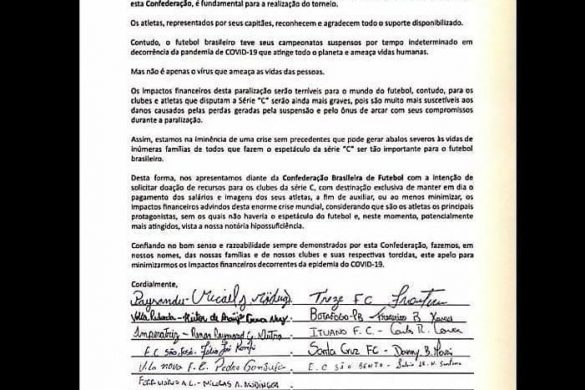 esta Confederação, é fundamental para a realização do torneio.
Os atletas, representados por seus capitães, reconhecem e agradecem todo o suporte disponibilizado.
Contudo, o futebol brasileiro teve seus campeonatos suspensos por tempo indeterminado em
decorrência da pandemia de COVID-19 que atinge todo o planeta e ameaça vidas humanas.
Mas não é apenas o vírus que ameaça as vidas das pessoas.
Os impactos financeiros desta paralização serão terríveis para o mundo do futebol, contudo, para os
clubes e atletas que disputam a Série "C" serão ainda mais graves, pois são muito mais suscetíveis aos
danos causados pelas perdas geradas pela suspensão e pelo ônus de arcar com seus compromissos
durante a paralização.
Assim, estamos na iminência de uma crise sem precedentes que pode gerar abalos severos às vidas de
inúmeras famílias de todos que fazem o espetáculo da série "C" ser tão importante para o futebol
brasileiro.
Desta forma, nos apresentamos diante da Confederação Brasileira de Futebol com a intenção de
solicitar doação de recursos para os clubes da série C, com destinação exclusiva de manter em dia o
pagamento dos salários e imagens dos seus atletas, a fim de auxiliar, ou ao menos minimizar, os
impactos financeiros advindos desta enorme crise mundial, considerando que são os atletas os principais
protagonistas, sem os quais não haveria o espetáculo do futebol e, neste momento, potencialmente
mais atingidos, vista a nossa notória hipossuficiência.
Confiando no bom senso e razoabilidade sempre demonstrados por esta Confederação, fazemos, em
nossos nomes, das nossas famílias e de nossos clubes e suas respectivas torcidas, este apelo para
minimizarmos os impactos financeiros decorrentes da epidemia do COVID-19.
Cordialmente,
Paysandu Treze FC
Botafogo-PB
Imperatriz - Ituano F.C. - Carlos R.
E.C São José Santa Cruz FC - Danny
Vila Nova F.C. Pedro E.C São Bento